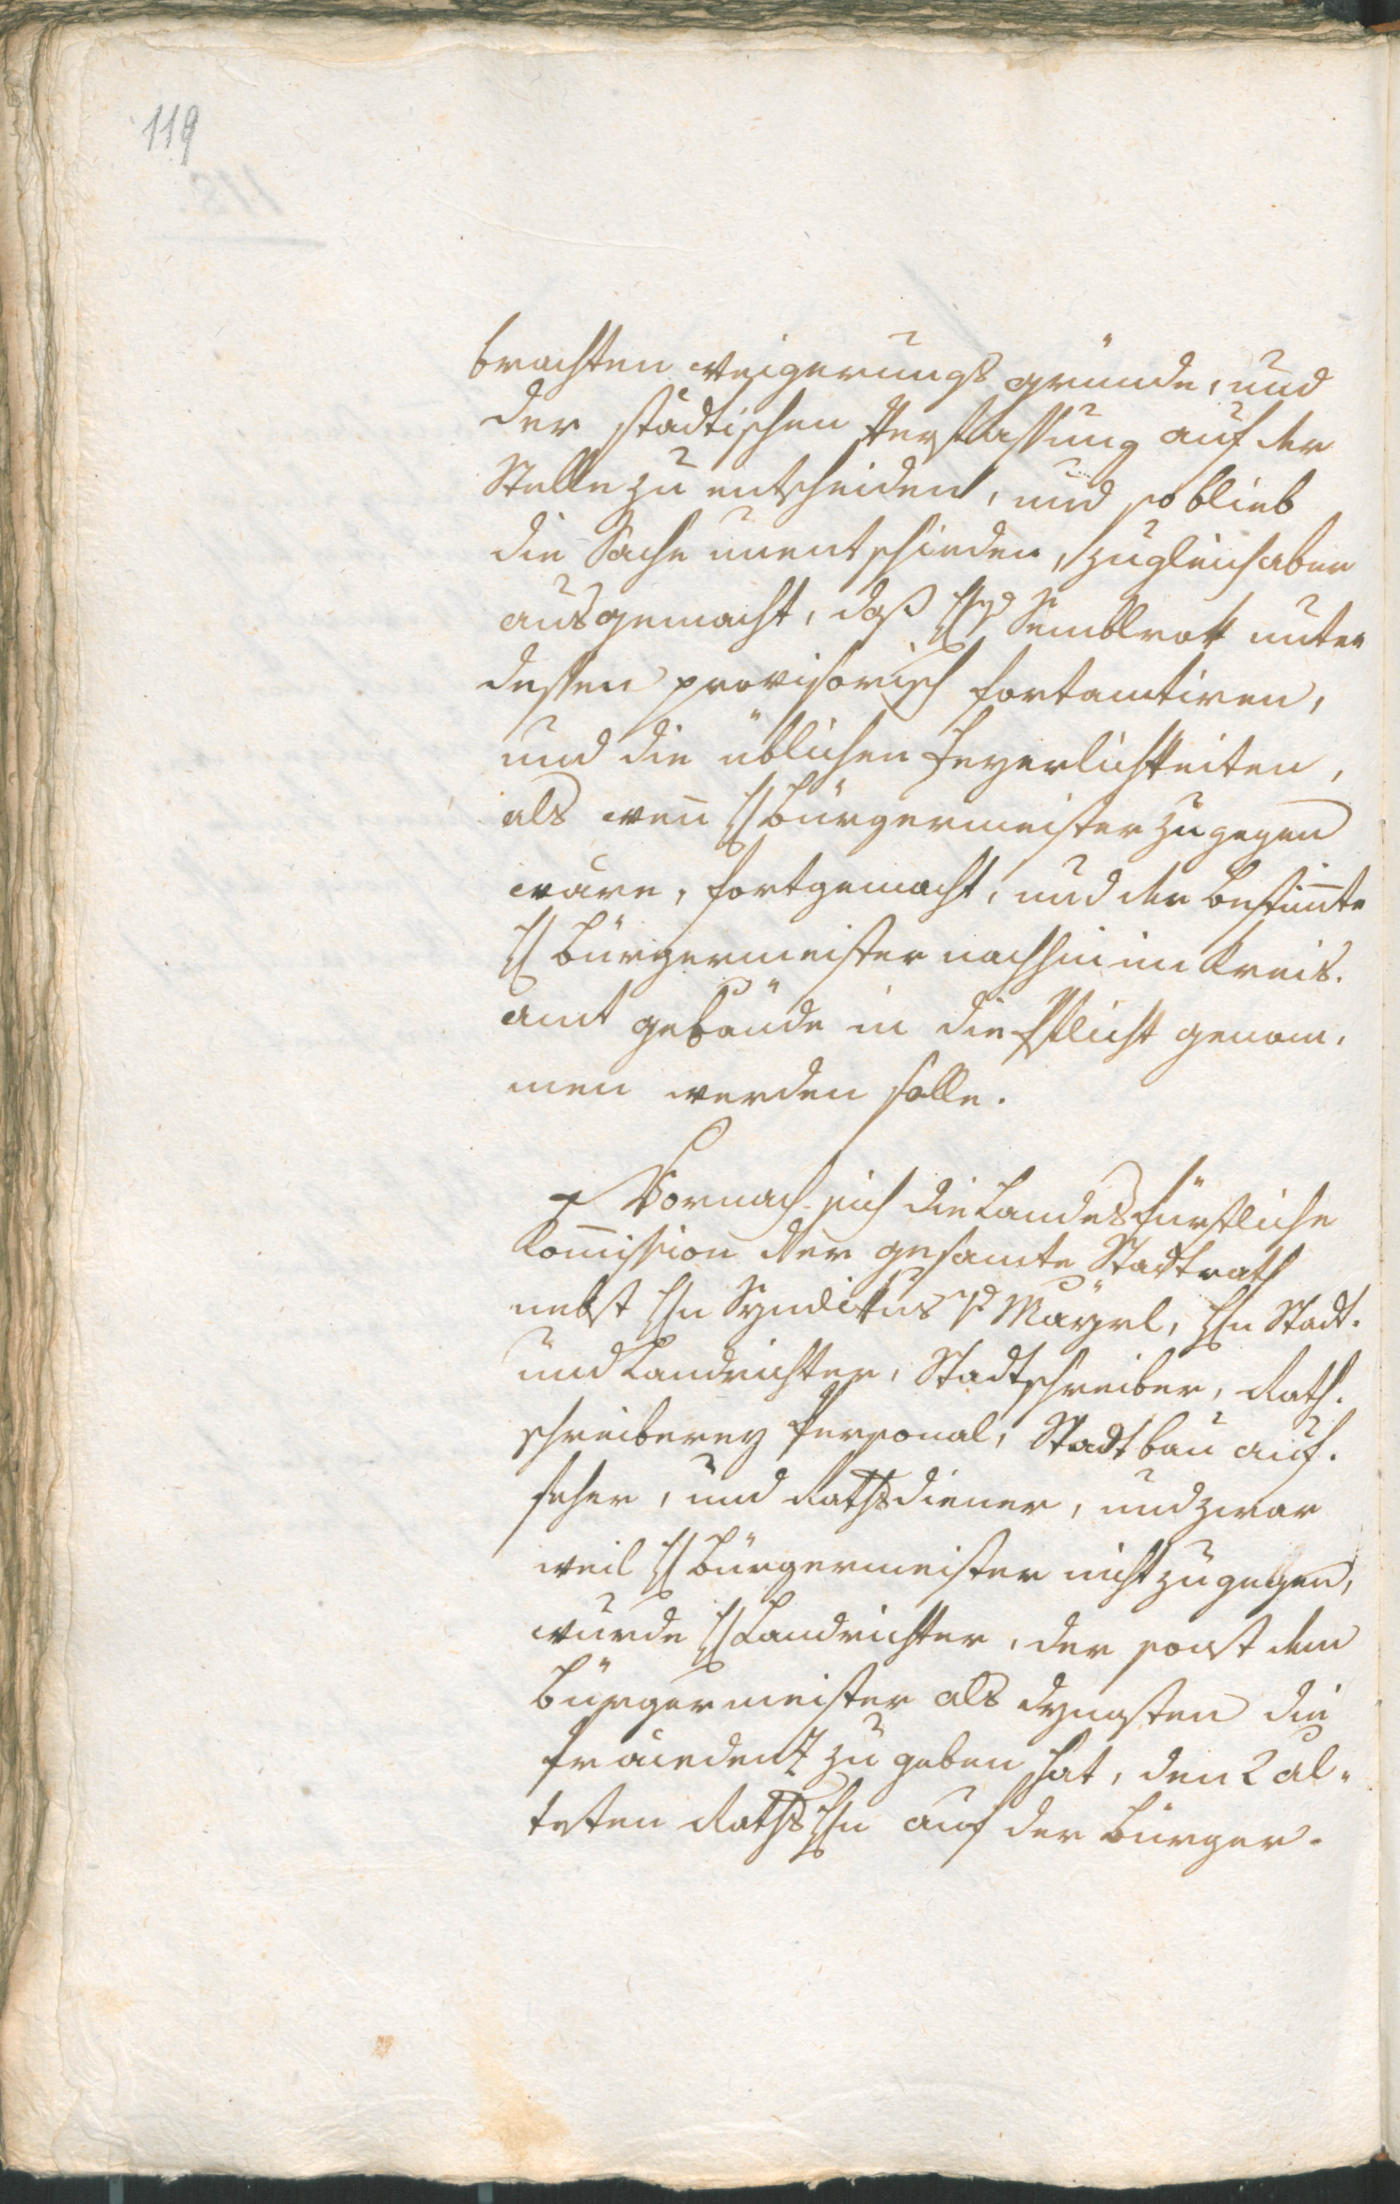 119
brachten weigerungs gründe, und
der städtischen Verfassung auf der
Stelle zu entscheiden, und so blieb
die Sache unentschieden, zugleich aber
ausgemacht, daß H v. Remblrott unter
dessen provisorisch fortamtiren,
und die üblichen Feyerlichkeiten,
als wen̄ H Bürgermeister zu gegen
wäre, fortgemacht, und der bestim̄te
H Bürgermeister nachhin im Kreis-
amt gebäude in die Pflicht genom-
men werden solle.
Wornach sich die Landesfürstliche
Kom̄ission der gesamte Stadtrath
nebst Hn Syndikus v. Mayrl, Hn Stadt-
und Landrichter, Stadtschreiber, Rath-
schreiberey Personal, Stadtbau auf-
seher, und Rathsdiener, und zwar
weil H Bürgermeister nicht zugegen,
wurde H Landrichter, der sonst dem
Bürgermeister als dynasten die
Präcedenz zu geben hat, den 2 äl-
testen Raths Hn auf der Bürger-